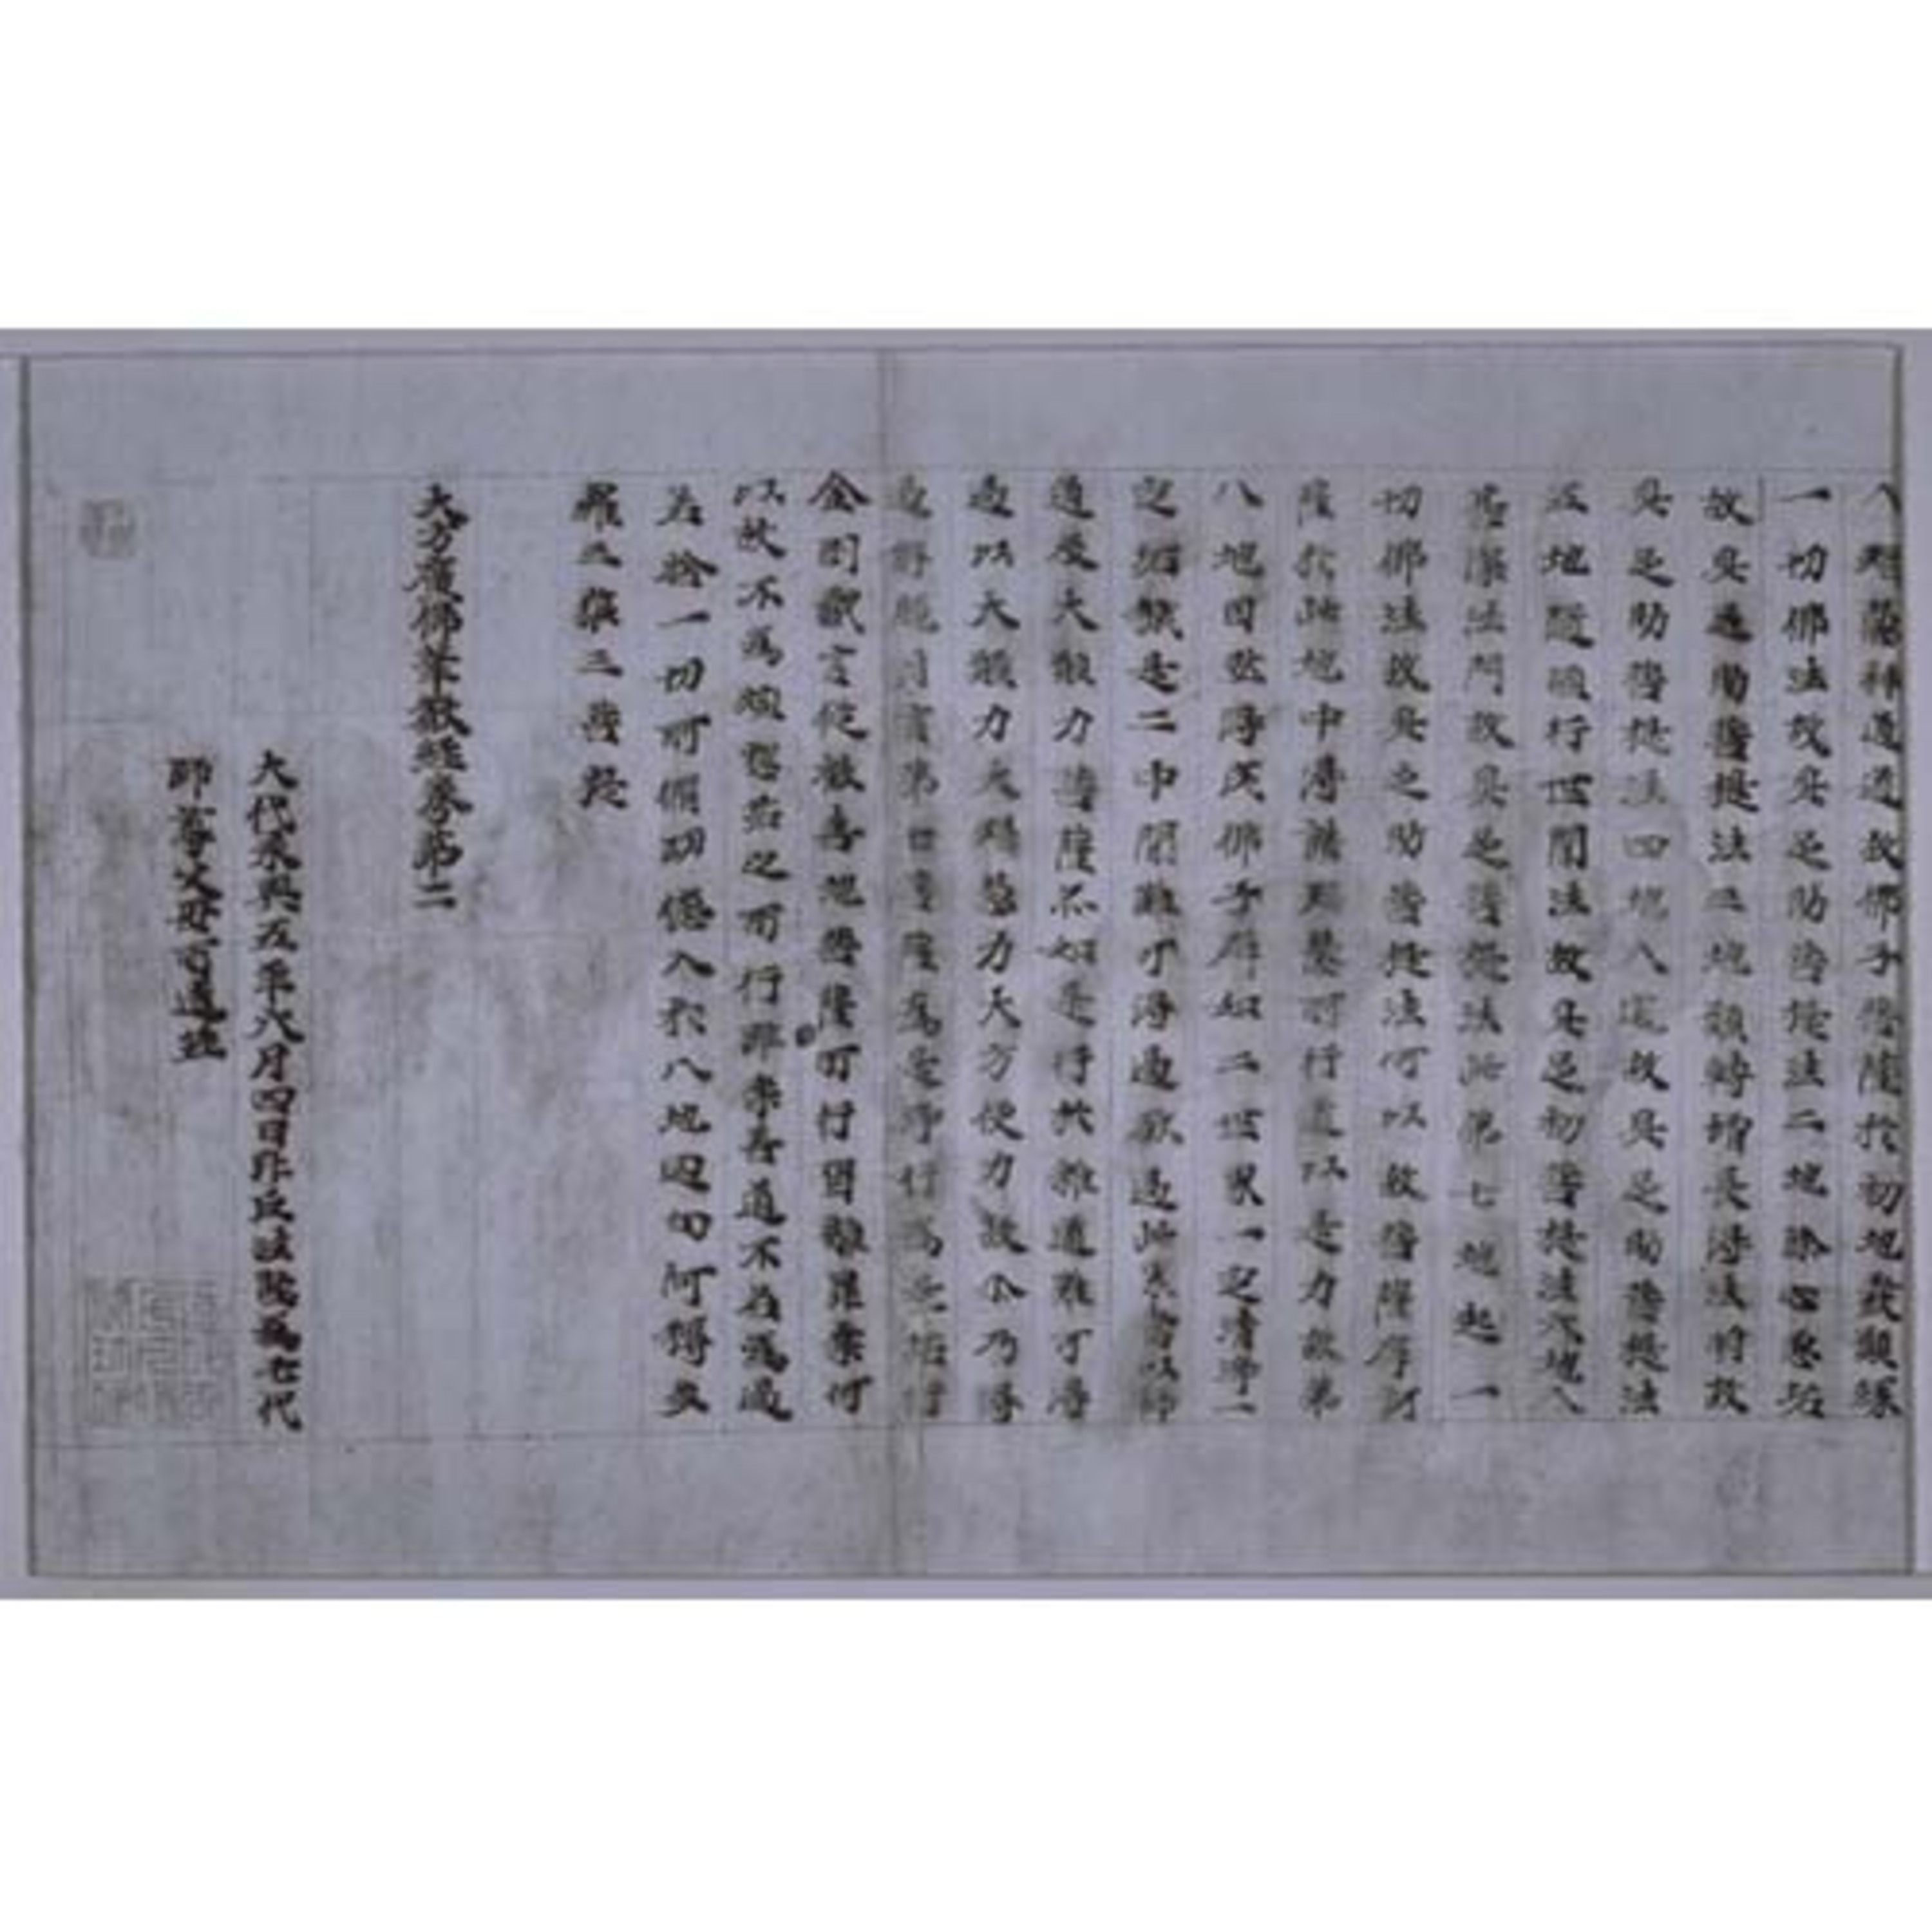 神通道故佛子菩薩於初地發願緣
一切佛法故具足助菩提法二地除心惡垢
故具足助菩提法三地願轉增長得法明故
具足助菩提法四地入道故具足助菩提法
五地隨順行世間法故具足助菩提法六地入
甚深法門故具足助菩提法此第七地起一
切佛法故具足助菩提法何以故菩薩摩訶
薩於此地中得諸智慧所行道以是力故第
八地自然得成佛子譬如二世界一定清淨一
定垢穢是二中間難可得過欲過此界當以神
通及大願力菩薩亦如是行於雜道難可得
過以大願力大智慧力大方便力故尒乃得
過解脫月言第七菩薩為是淨行為是垢行
金剛藏言從歡喜地菩薩所行皆離罪業何
以故不為煩惱之所行善道不名為過
若於一切所願功德入於八地迴向阿耨多
羅三藐三菩提
大方廣佛華嚴經卷第二
大代永興五年六月四日比丘法隆為七代
師尊父母百道造